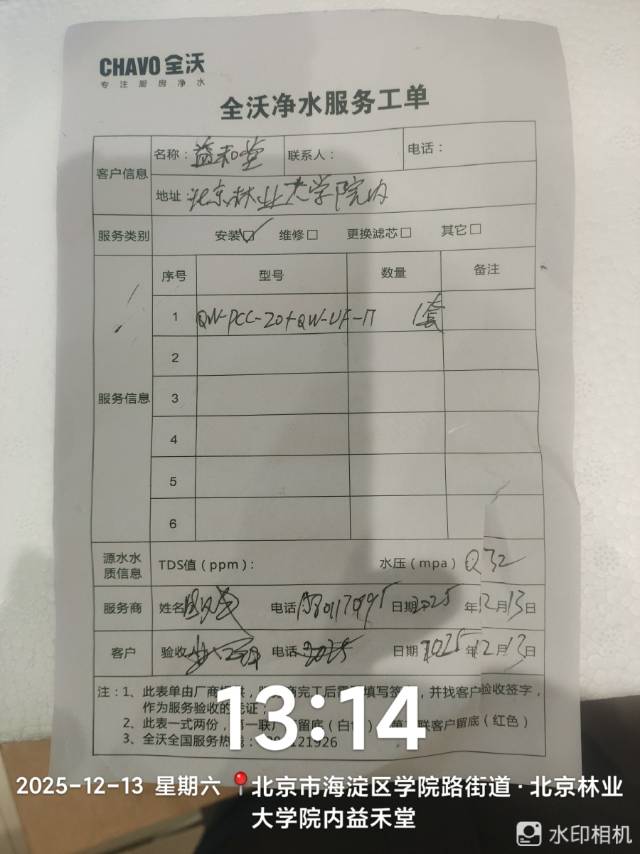 CHAVO 全沃
专注厨房净水
全沃净水服务工单
客户信息
名称：益禾堂 联系人： 电话：
地址 北京林业大学院内
服务类别 安装☑ 维修□ 更换滤芯□ 其它□
服务信息
序号 型号 数量 备注
1 QW-PCC-20+QW-UF-17 1套
2
3
4
5
6
源水水质信息 TDS值（ppm）： 水压（mpa） 0.32
服务商 姓名 电话 日期 2025年12月13日
客户 验收 电话 日期 2025年12月13日
注：1、此表单由厂商 完工后 填写 ，并找客户验收签字，
作为服务验收的凭证；
2、此表一式两份，第一联厂 留底（白 联客户留底（红色）
3、全沃全国服务热 121926
13:14
2025-12-13 星期六 北京市海淀区学院路街道·北京林业
大学院内益禾堂
水印相机